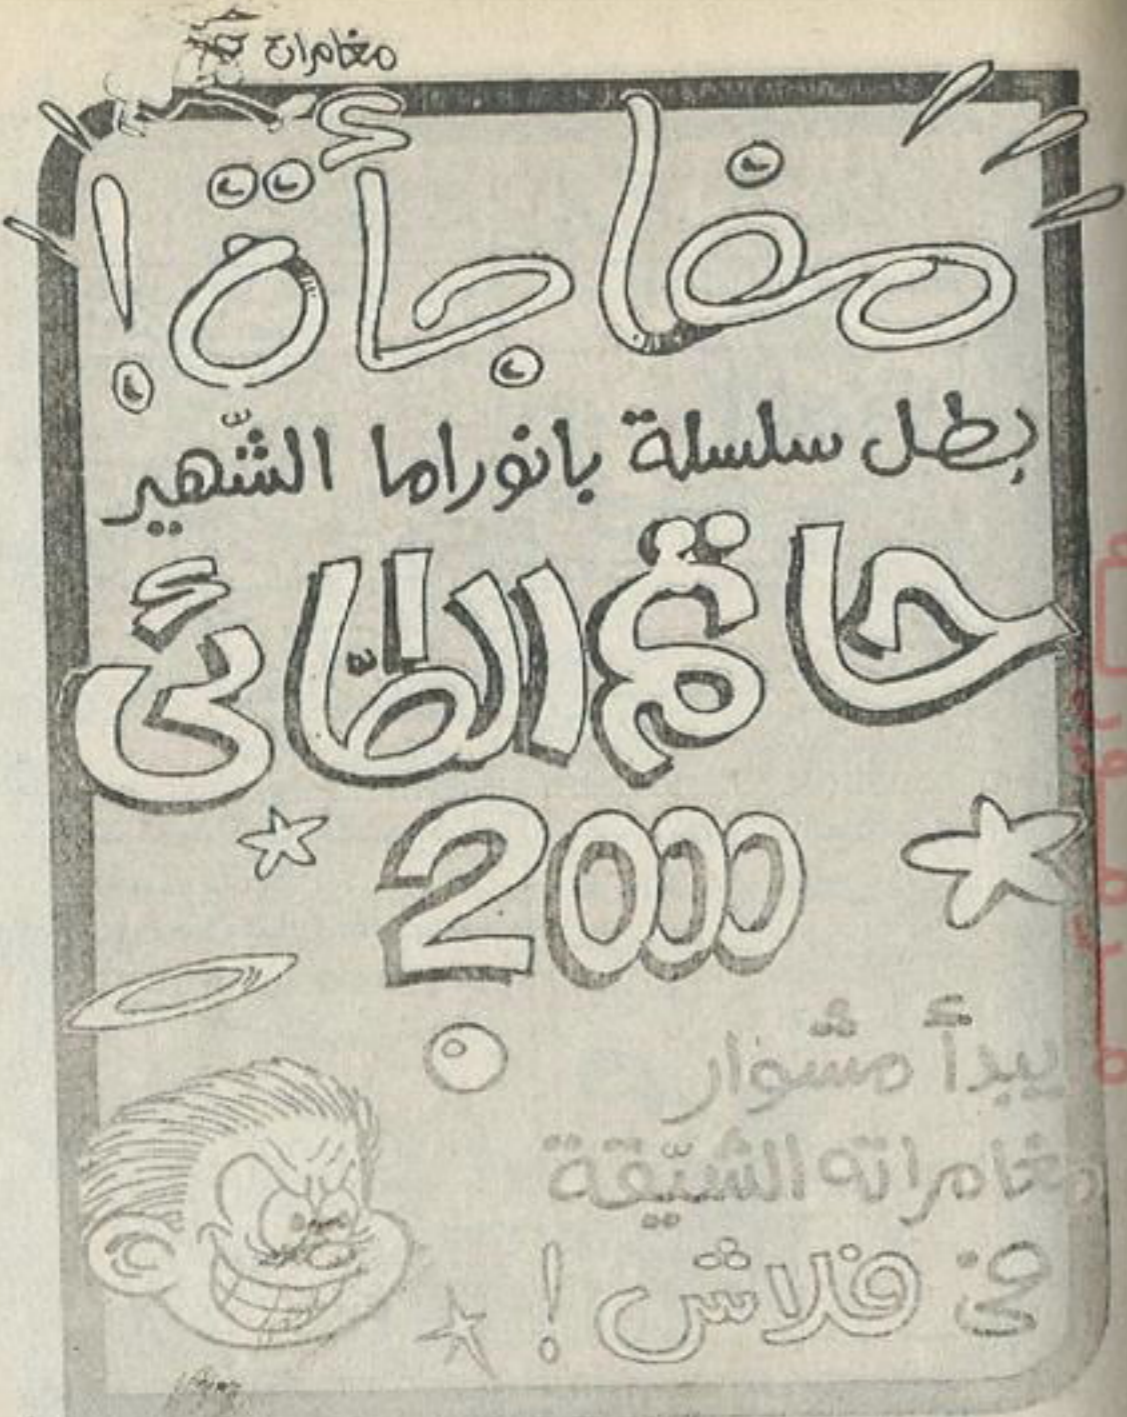 مغامرات
مفاجأة !
بطل سلسلة بانوراما الشّهير
حاتم الطّائى
2000
يبدأ مشوار
مغامراته الشيّقة
فى فلاش !